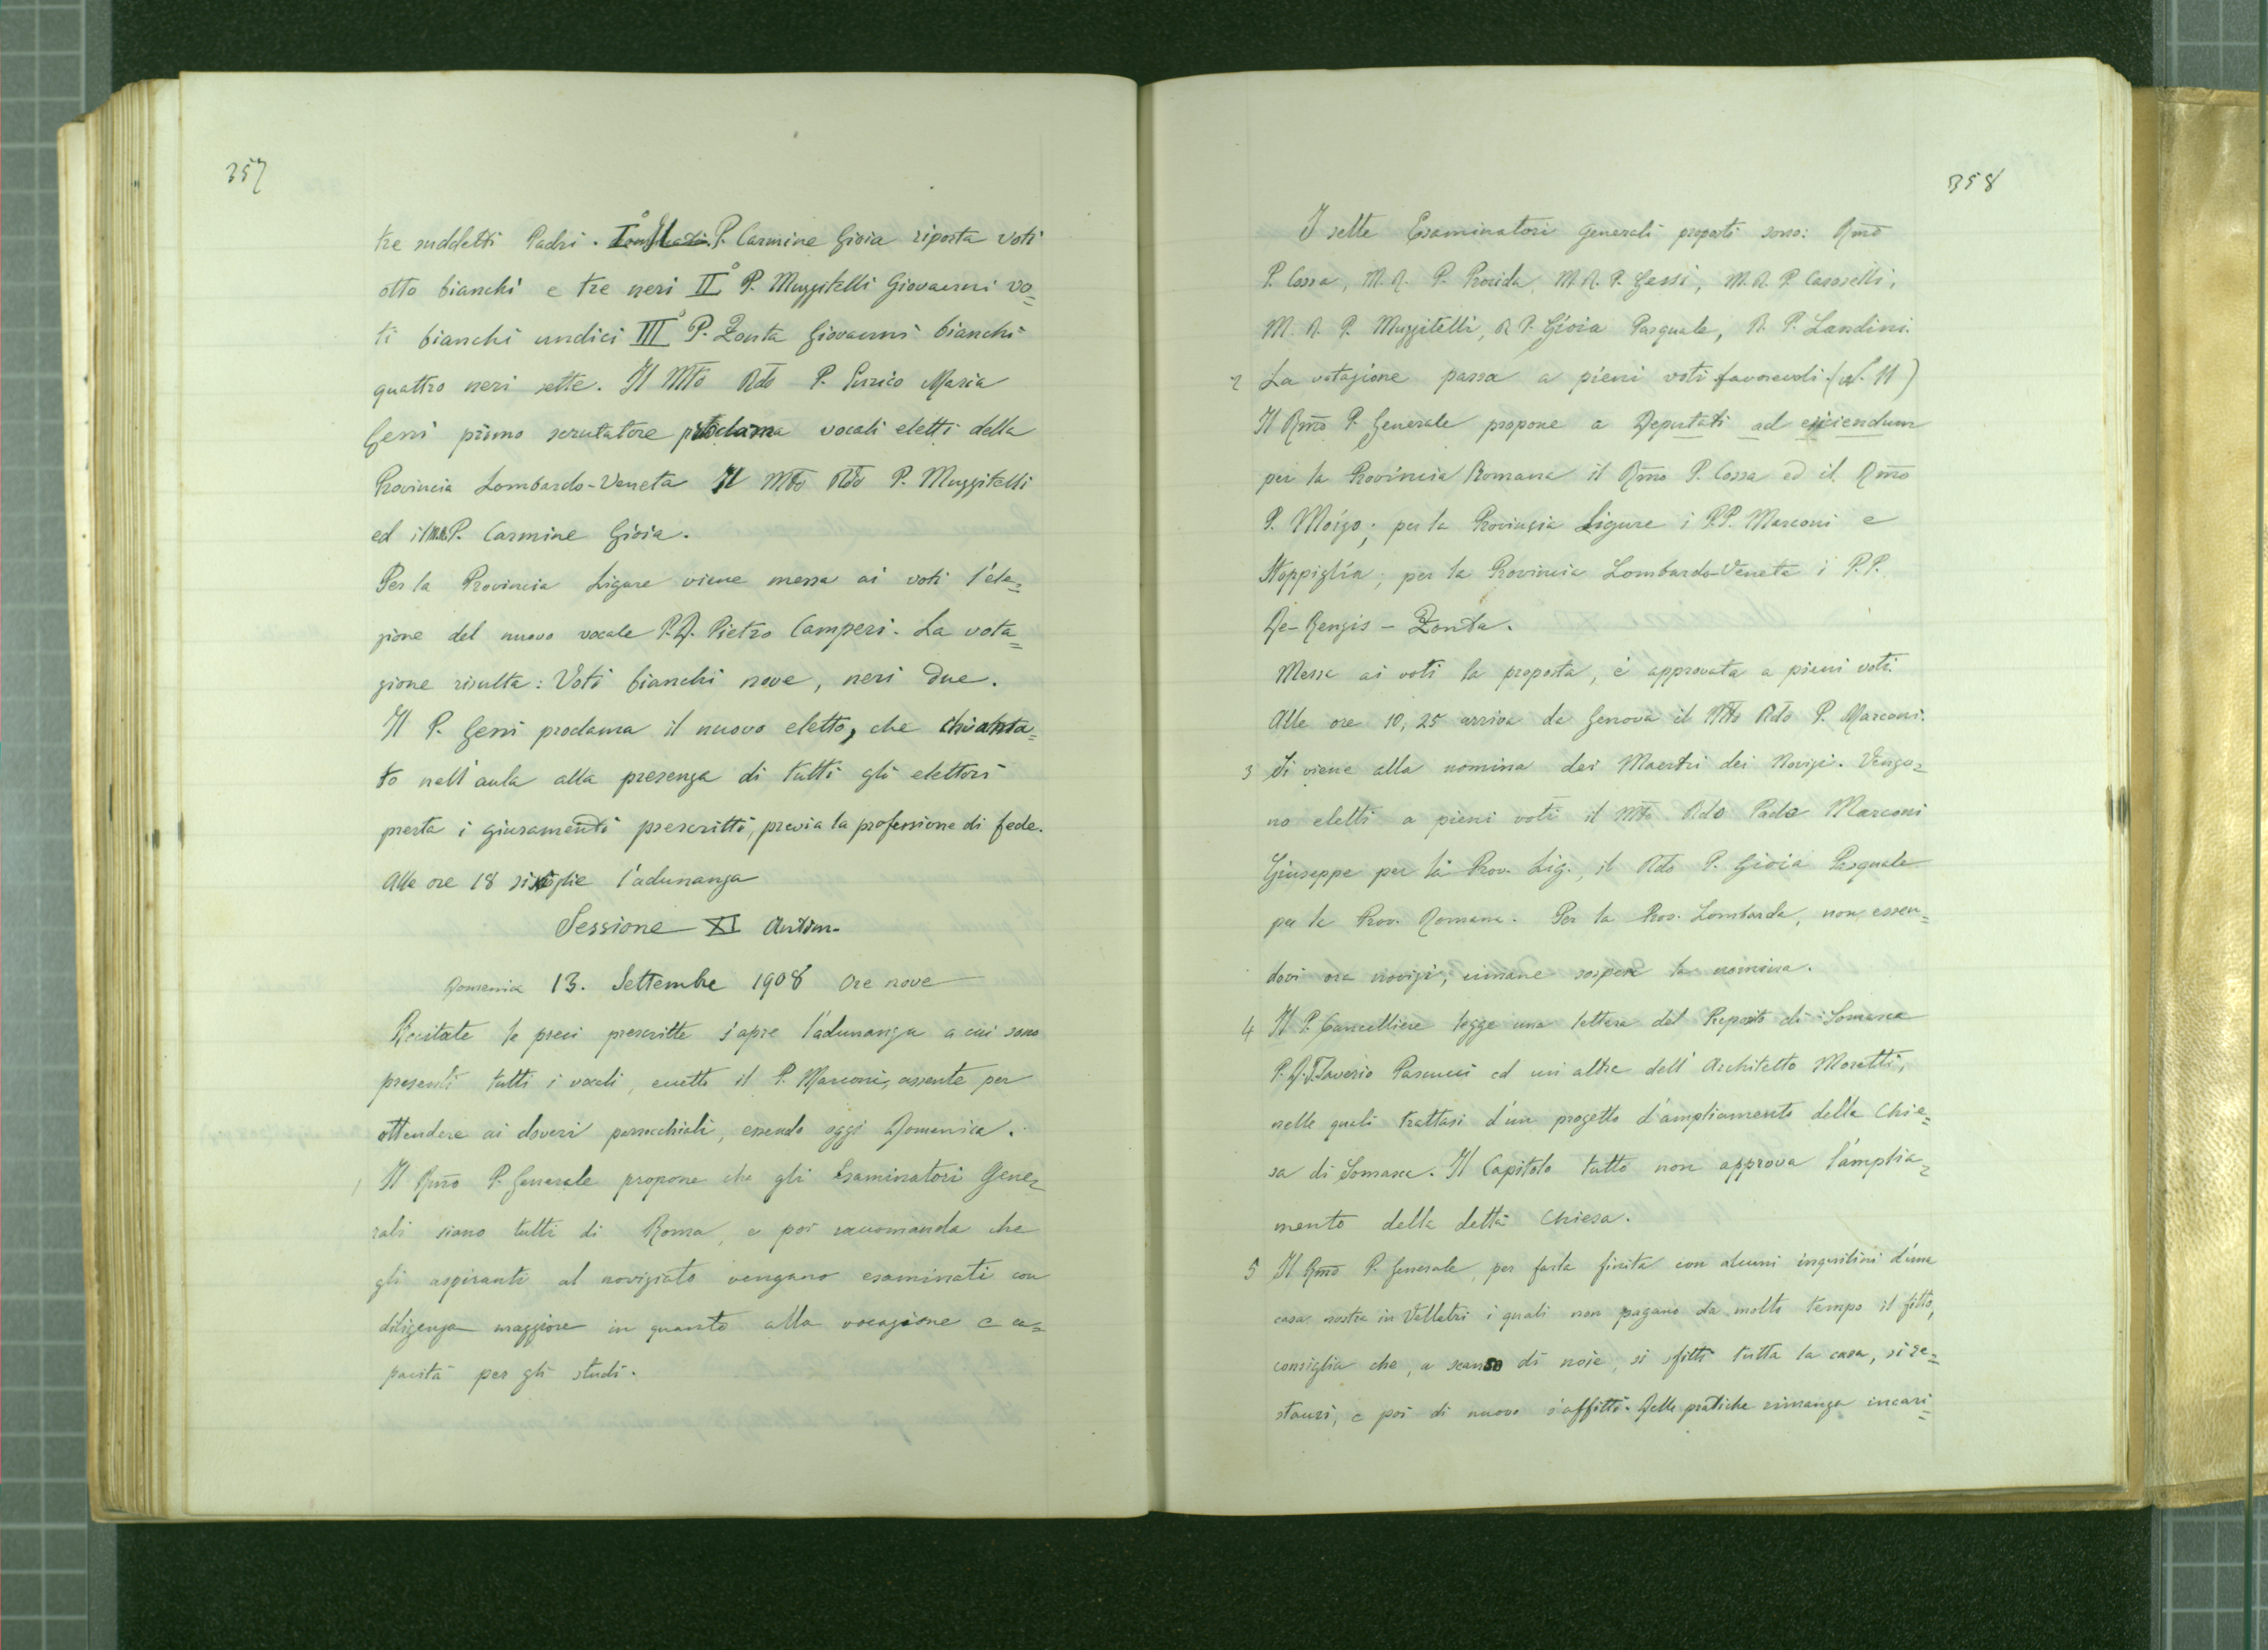 357
tre suddetti Padri. I° Il P. Carmine Gioia riporta voti
otto bianchi e tre neri II° P. Muzzitelli Giovanni vo=
ti bianchi undici III° P. Zonta Giovanni bianchi
quattro neri sette. Il Mto Rdo P. Enrico Maria
Gessi primo scrutatore proclama vocali eletti della
Provincia Lombardo-Veneta Il Mto Rdo P. Muzzitelli
ed il M.R.P. Carmine Gioia.
Per la Provincia Ligure viene messa ai voti l'ele=
zione del nuovo vocale P.D. Pietro Camperi. La vota=
zione risulta: Voti bianchi nove, neri due.
Il P. Gessi proclama il nuovo eletto, che chiama=
to nell'aula alla presenza di tutti gli elettori
presta i giuramenti prescritti, previa la professione di fede.
Alle ore 18 si scioglie l'adunanza
Sessione XI Antim.
Domenica 13. Settembre 1908 Ore nove
Recitate le preci prescritte s'apre l'adunanza a cui sono
presenti tutti i vocali, eccetto il P. Marconi, assente per
attendere ai doveri parrocchiali, essendo oggi Domenica.
1 Il Rmo P. Generale propone che gli Esaminatori Gene=
rali siano tutti di Roma, e poi raccomanda che
gli aspiranti al noviziato vengano esaminati con
diligenza maggiore in quanto alla vocazione e ca=
pacità per gli studi.
358
I sette Esaminatori Generali proposti sono: Rmo
P. Cossa, M.R. P. Procida, M.R.P. Gessi, M.R.P. Caroselli,
M. R. P. Muzzitelli, R. P. Gioia Pasquale, R. P. Landini.
2 La votazione passa a pieni voti favorevoli. (N. 11)
Il Rmo P. Generale propone a Deputati ad eiiciendum
per la Provincia Romana il Rmo P. Cossa ed il Rmo
P. Moizo; per la Provinzia Ligure i P.P. Marconi e
Stoppiglia; per la Provincia Lombardo-Veneta i P.P.
De-Renzis - Zonta.
Messa ai voti la proposta, è approvata a pieni voti.
Alle ore 10,25 arriva da Genova il Mto Rdo P. Marconi.
3 Si viene alla nomina dei Maestri dei Novizi. Vengo=
no eletti a pieni voti il Mto Rdo Padre Marconi
Giuseppe per la Prov. Lig., il Rdo P. Gioia Pasquale
per la Prov. Romana. Per la Prov. Lombarda, non essen=
dovi ora novizi, rimane sospesa la nomina.
4 Il P. Cancelliere legge una lettera del Preposito di Somasca
P.D. Saverio Pascucci ed un'altra dell'Architetto Moretti,
nelle quali trattasi d'un progetto d'ampliamento della Chie=
sa di Somasca. Il Capitolo tutto non approva l'amplia=
mento della detta Chiesa.
5 Il Rmo P. Generale, per farla finita con alcuni inquilini d'una
casa nostra in Velletri i quali non pagano da molto tempo il fitto,
consiglia che, a scanso di noie, si sfitti tutta la casa, si re=
stauri, e poi di nuovo s'affitti. Delle pratiche rimanga incari=